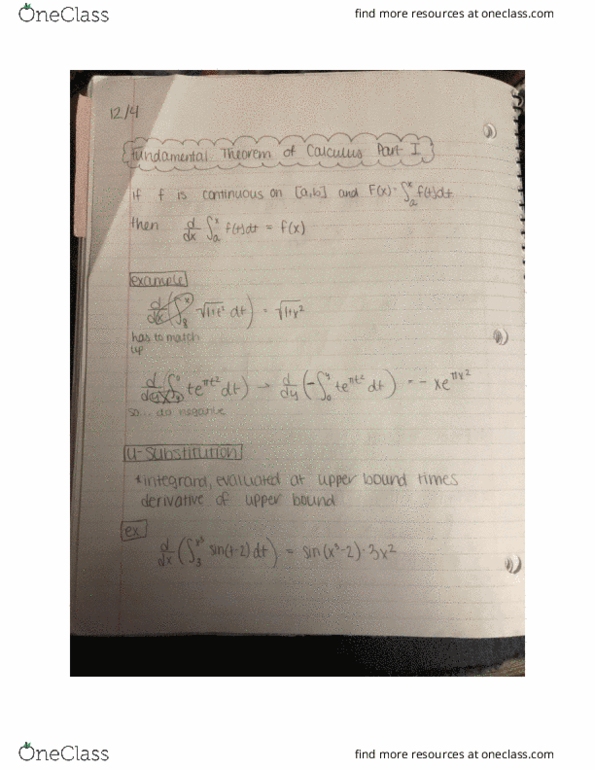 OneClass
find more resources at oneclass.com
12/4
Fundamental Theorem of Calculus Part I
if f is continuous on [a,b] and F(x)=∫ₐˣ f(t)dt
then d/dx ∫ₐˣ f(t)dt = f(x)
example
d/dx (∫₈ˣ √1+t² dt) = √1+x²
has to match
up
te^πt² dt) → d/dy (-∫₀ʸ te^πt² dt) = - xe^πx²
so... do negative
U-Substitution
*integrand, evaluated at upper bound times
derivative of upper bound
ex
d/dx (∫₃ˣ³ sin(t-2)dt) = sin(x³-2)·3x²
OneClass
find more resources at oneclass.com